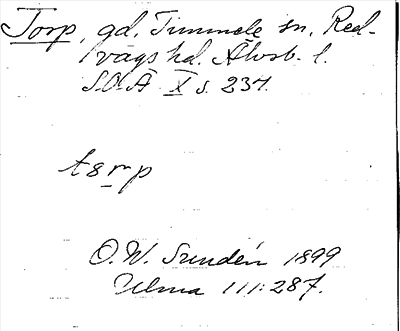 Torp, gd. Timmele sn, Red-
vägs hd. Älvsb. l.
S.O.Ä X s. 234.
O.W. Sundén 1899
Ulma 111:287.